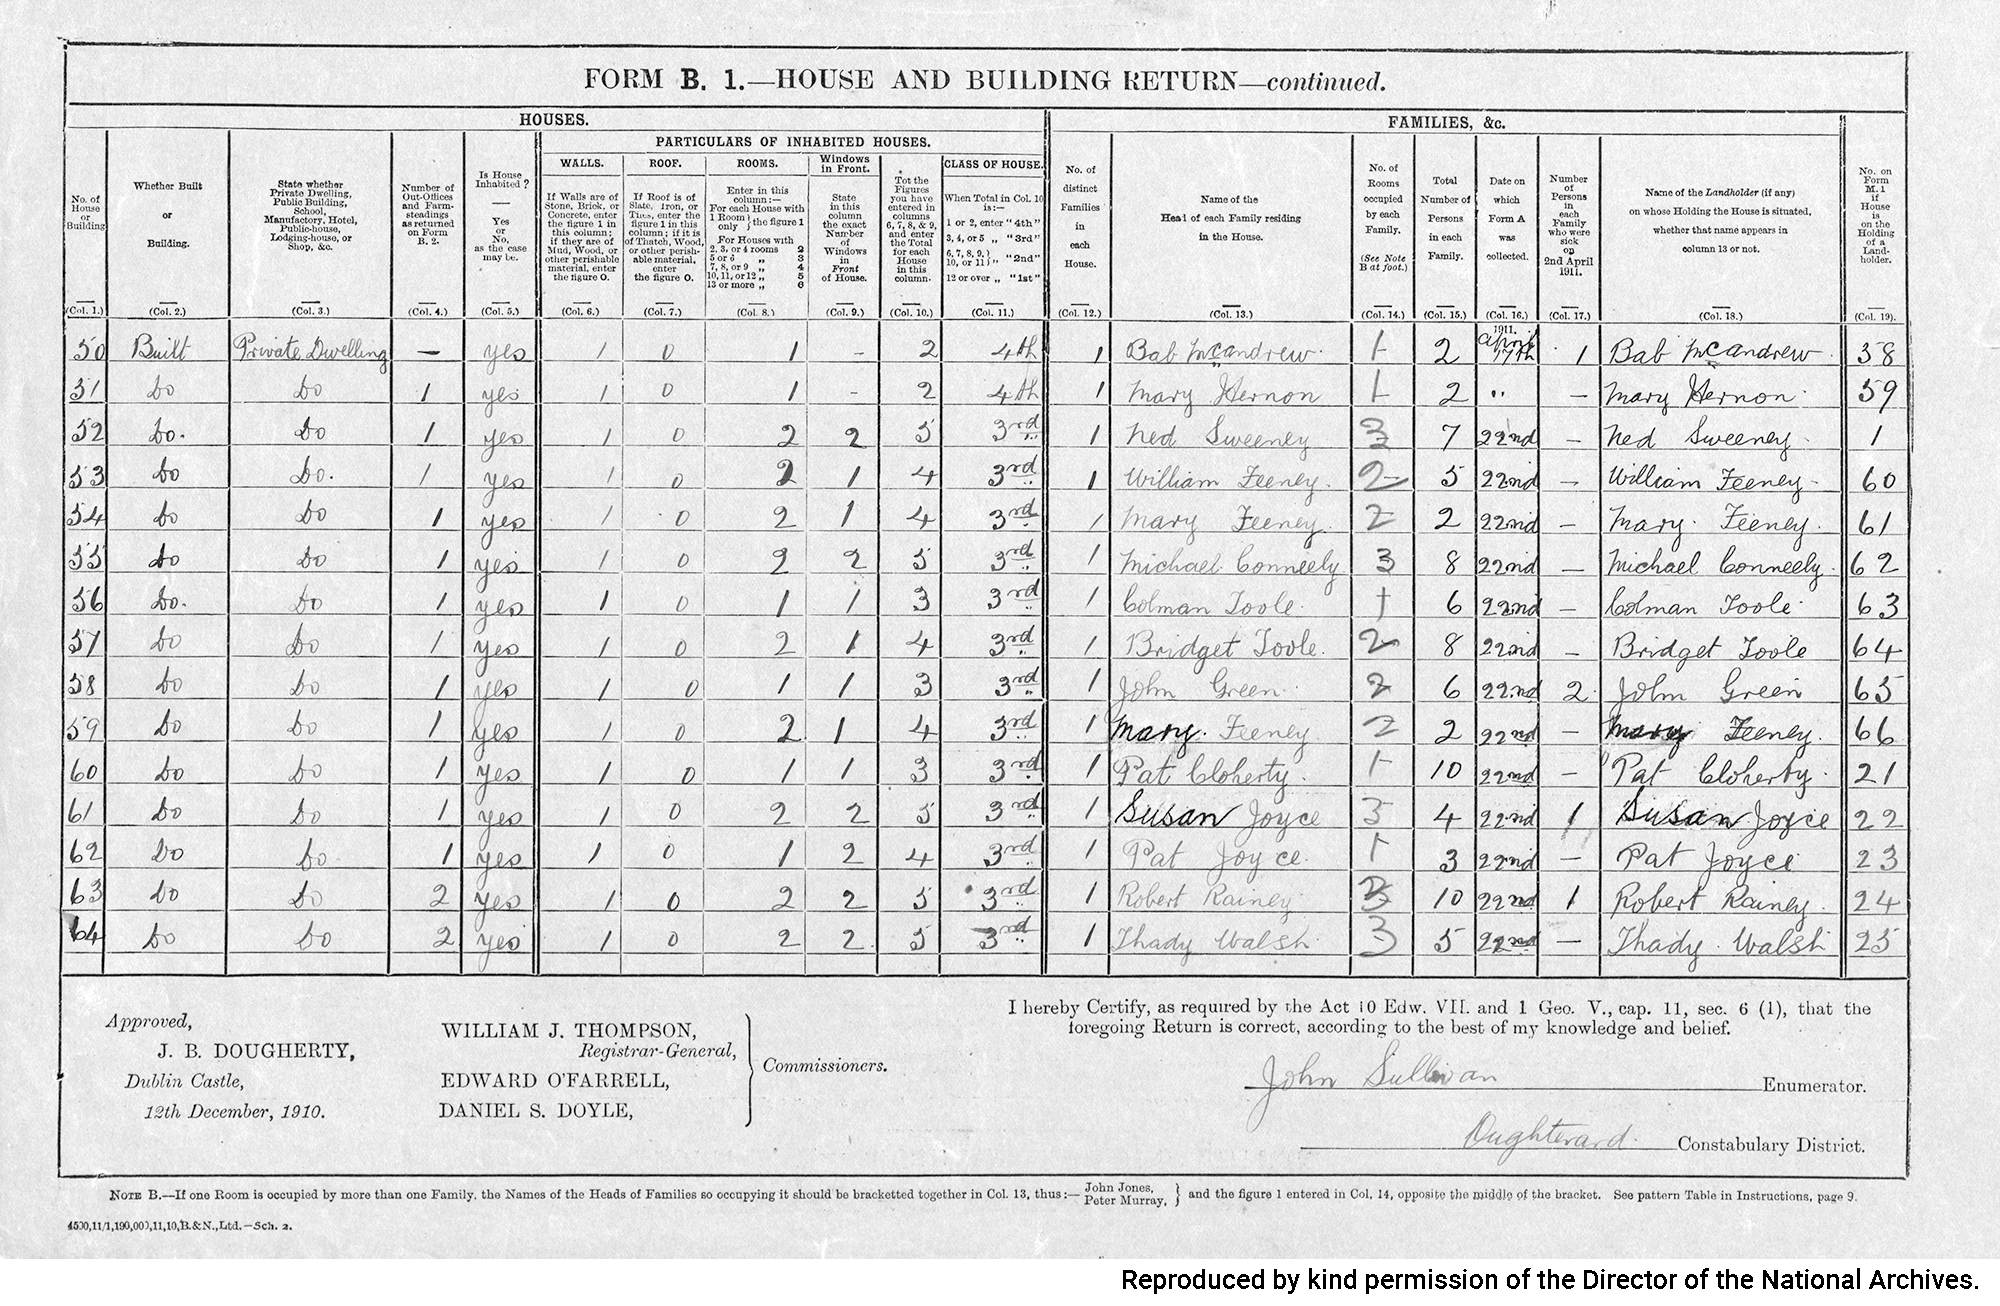 FORM B. 1.—HOUSE AND BUILDING RETURN—continued.
HOUSES.
FAMILIES, &c.
PARTICULARS OF INHABITED HOUSES.
WALLS.
ROOF.
ROOMS.
Windows in Front.
CLASS OF HOUSE.
No. of House or Building
Whether Built or Building.
State whether Private Dwelling, Public Building, School, Manufactory, Hotel, Public-house, Lodging-house, or Shop, &c.
Number of Out-Offices and Farm-steadings as returned on Form B. 2.
Is House Inhabited? — Yes or No, as the case may be.
If Walls are of Stone, Brick, or Concrete, enter the figure 1 in this column; if they are of Mud, Wood, or other perishable material, enter the figure 0.
If Roof is of Slate, Iron, or Tiles, enter the figure 1 in this column; if it is of Thatch, Wood, or other perishable material, enter the figure 0.
Enter in this column:— For each House with 1 Room only } the figure 1
For Houses with
2, 3, or 4 rooms 2
5 or 6 „ 3
7, 8, or 9 „ 4
10, 11, or 12 „ 5
13 or more „ 6
State in this column the exact Number of Windows in Front of House.
Tot the Figures you have entered in columns 6, 7, 8, & 9, and enter the Total for each House in this column.
When Total in Col. 10 is:—
1 or 2, enter "4th"
3, 4, or 5 „ "3rd"
6, 7, 8, 9, 10, or 11 } „ "2nd"
12 or over „ "1st"
No. of distinct Families in each House.
Name of the Head of each Family residing in the House.
No. of Rooms occupied by each Family. (See Note B at foot.)
Total Number of Persons in each Family.
Date on which Form A was collected.
Number of Persons in each Family who were sick on 2nd April 1911.
Name of the Landholder (if any) on whose Holding the House is situated, whether that name appears in column 13 or not.
No. on Form M. 1 if House is on the Holding of a Land-holder.
(Col. 1.) (Col. 2.) (Col. 3.) (Col. 4.) (Col. 5.) (Col. 6.) (Col. 7.) (Col. 8.) (Col. 9.) (Col. 10.) (Col. 11.) (Col. 12.) (Col. 13.) (Col. 14.) (Col. 15.) (Col. 16.) (Col. 17.) (Col. 18.) (Col. 19).
50 Built Private Dwelling — yes 1 0 1 - 2 4th 1 Bab McAndrew 1 2 1911. April 17th 1 Bab McAndrew 58
51 Do Do 1 yes 1 0 1 - 2 4th 1 Mary Hernon 1 2 " — Mary Hernon 59
52 Do. Do 1 yes 1 0 2 2 5 3rd 1 Ned Sweeney 3 7 22nd — Ned Sweeney 1
53 Do Do. 1 yes 1 0 2 1 4 3rd 1 William Feeney 2 5 22nd — William Feeney 60
54 Do Do 1 yes 1 0 2 1 4 3rd 1 Mary Feeney. 2 2 22nd — Mary Feeney. 61
55 Do Do 1 yes 1 0 2 2 5 3rd 1 Michael Conneely 3 8 22nd — Michael Conneely 62
56 Do. Do 1 yes 1 0 1 1 3 3rd 1 Colman Toole 1 6 22nd — Colman Toole 63
57 Do Do 1 yes 1 0 2 1 4 3rd 1 Bridget Toole. 2 8 22nd — Bridget Toole 64
58 Do Do 1 yes 1 0 1 1 3 3rd 1 John Green 2 6 22nd 2 John Green 65
59 Do Do 1 yes 1 0 2 1 4 3rd 1 Mary Feeney 2 2 22nd — Mary Feeney. 66
60 Do Do 1 yes 1 0 1 1 3 3rd 1 Pat Cloherty. 1 10 22nd — Pat Cloherty 21
61 Do Do 1 yes 1 0 2 2 5 3rd 1 Susan Joyce 3 4 22nd 1 Susan Joyce 22
62 Do Do 1 yes 1 0 1 2 4 3rd 1 Pat Joyce. 1 3 22nd — Pat Joyce 23
63 Do Do 2 yes 1 0 2 2 5 3rd 1 Robert Rainey 3 10 22nd 1 Robert Rainey. 24
64 Do Do 2 yes 1 0 2 2 5 3rd 1 Thady Walsh 3 5 22nd — Thady Walsh 25
Approved,
J. B. DOUGHERTY,
Dublin Castle,
12th December, 1910.
WILLIAM J. THOMPSON,
Registrar-General,
EDWARD O'FARRELL,
DANIEL S. DOYLE,
Commissioners.
I hereby Certify, as required by the Act 10 Edw. VII. and 1 Geo. V., cap. 11, sec. 6 (1), that the
foregoing Return is correct, according to the best of my knowledge and belief.
John Sullivan Enumerator.
Oughterard. Constabulary District.
NOTE B.—If one Room is occupied by more than one Family, the Names of the Heads of Families so occupying it should be bracketted together in Col. 13, thus:— John Jones, Peter Murray, } and the figure 1 entered in Col. 14, opposite the middle of the bracket. See pattern Table in Instructions, page 9.
4500,11/1,190,000,11,10,B.&N.,Ltd.—Sch. 2.
Reproduced by kind permission of the Director of the National Archives.